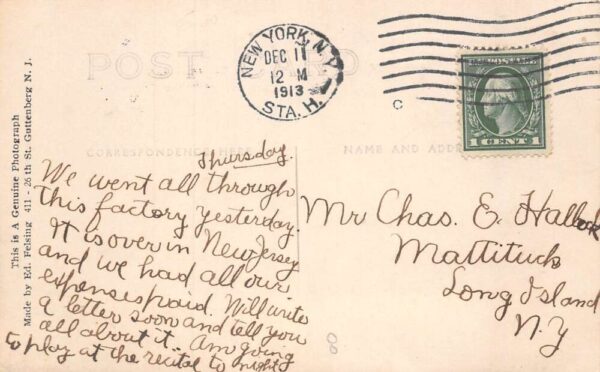 POST CARD
NEW YORK, N.Y.
DEC 11
12 M
1913
STA. H.
C
1 CENT 1
CORRESPONDENCE HERE
NAME AND ADDRESS
This is A Genuine Photograph
Made by Ed. Felsing 411 - 26th St. Guttenberg N. J.
Thursday.
We went all through
this factory yesterday.
It is over in New Jersey
and we had all our
expenses paid. Will write
a letter soon and tell you
all about it. Am going
to play at the recital to night
Mr Chas. E. Hallock
Mattituck
Long Island
N.Y